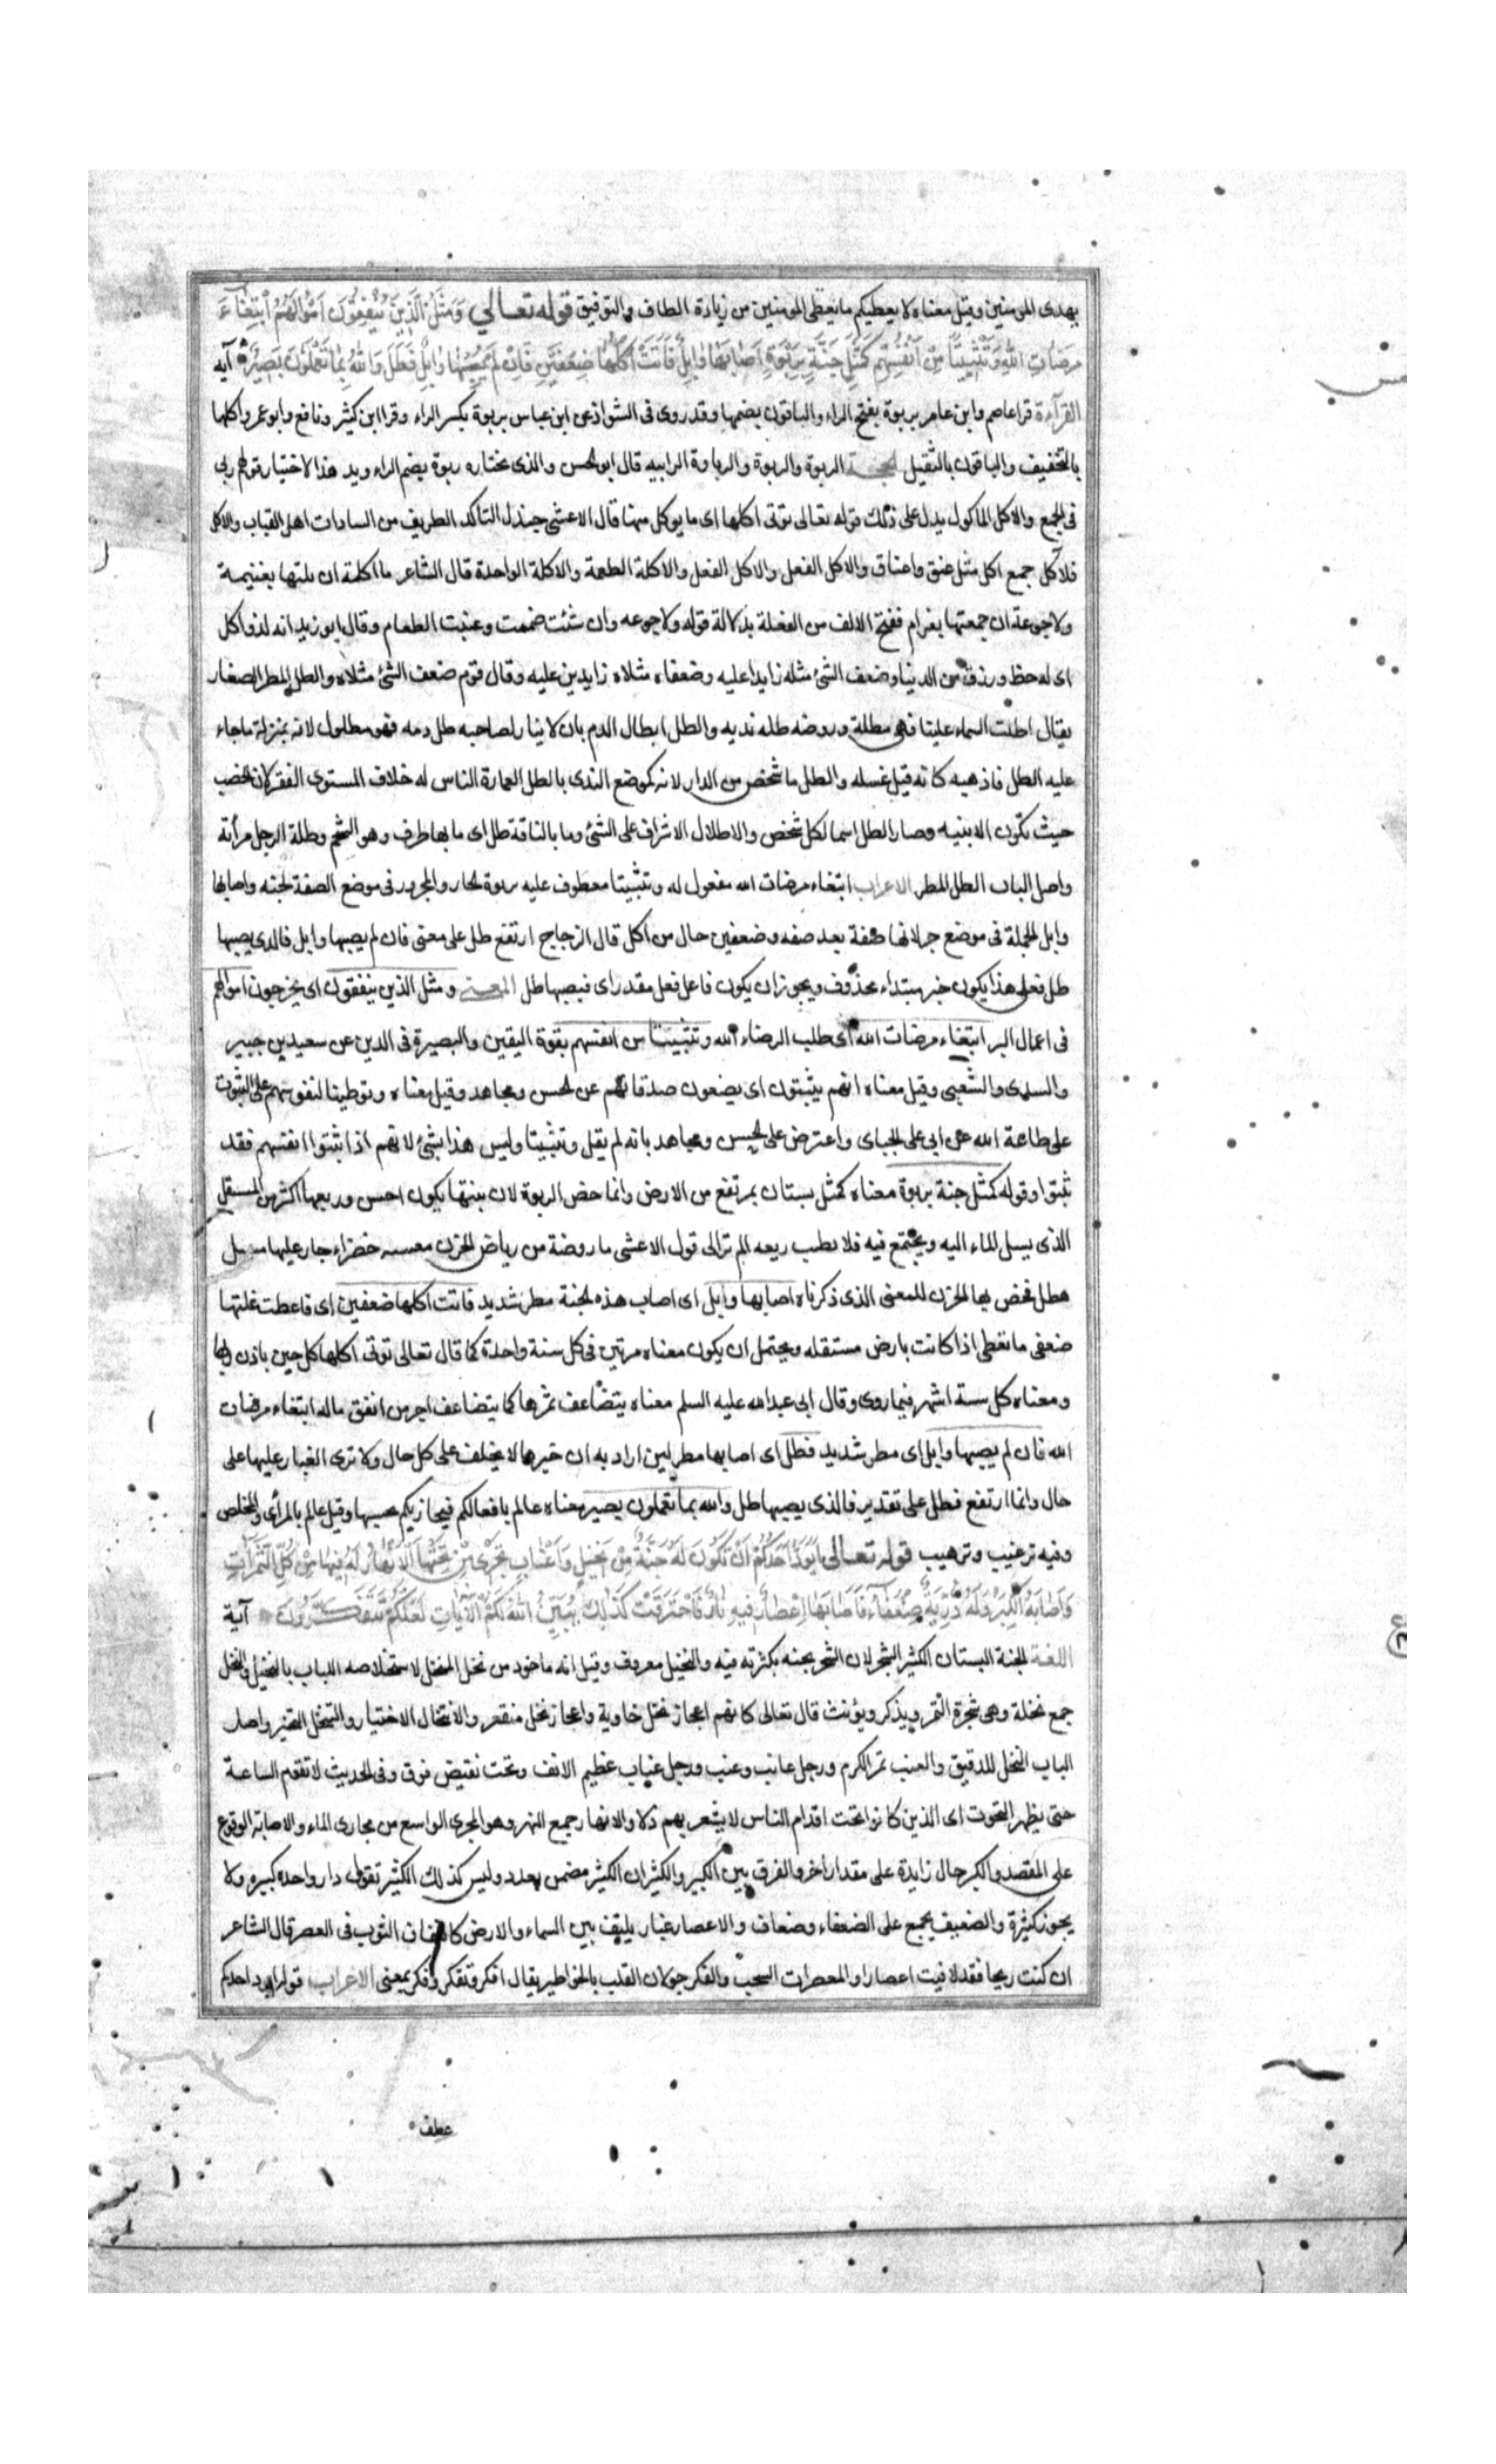 يهدى المومنين وقيل معناه لا يعطيكم ما يعطى المومنين من زيادة الطاف والتوفيق قوله تعالي وَمَثَلُ الَّذِينَ يُنْفِقُونَ اَمْوالَهُمُ ابْتِغاءَ
مَرضَاتِ اللهِ وَتَثْبِيتًا مِنْ اَنْفُسِهِم كَمَثَلِ جَنَّةٍ بِرَبْوَةٍ اَصابَها وابِلٌ فَاتَتْ اُكُلَها ضِعفَينِ فَاِنْ لَمْ يُصِبْها وابِلٌ فَطَلٌّ وَاللهُ بِما تَعْمَلُونَ بَصِيرٌ آيه
القرآءة قرا عاصم وابن عامر بربوة بفتح الراء والباقون بضمها وقد روى فى الشواذ عن ابن عباس بربوة بكسر الراء وقرا ابن كثير ونافع وابو عمرو اكلها
بالتخفيف والباقون بالتثقيل الربوة والربوة والرباوة الرابيه قال ابو الحسن والذى نختاره ربوة بضم الراء ويد هذا الاختيار قولهم ربى
فى الجمع والاكل الماكول يدل على ذلك قوله تعالى توتى اكلها اى ما يوكل منها قال الاعشى جندل التالد الطريف من السادات اهل القباب والاكل
فلاكل جمع اكل مثل عنق واعناق والاكل الفعل والاكل الفعل والاكلة الطعمة والاكلة الواحدة قال الشاعر ما اكلة ان نلتها بغنيمة
ولا جوعة ان جمعتها بغرام ففتح الالف من الفعلة بدلالة قوله ولا جوعه وان شئت ضممت وعنيت الطعام وقال ابو زيد انه لذو اكل
اى له حظ ورزق من الدنيا وضعف الشئ مثله زايدا عليه وضعفاه مثلاه زايدين عليه وقال قوم ضعف الشئ مثلاه والطل المطر الصغار
يقال اطلت السماء علينا فهى مطلة وروضه طله نديه والطل ابطال الدم بان لا يثار لصاحبه طل دمه فهو مطلول لانه بمنزلة ما جاء
عليه الطل فاذهبه كانه قيل غسله والطلل ما شخص من الدار لانه كموضع الندى بالطل العمارة الناس له خلاف المستوى الفقر لان الخصب
حيث تكون الابنيه وصار الطلل اسما لكل شخص والاطلال الاشراف على الشئ وما بالناقة طل اى ما بها طرف وهو الشحم وطلة الرجل مرأته
واصل الباب الطل المطر الاعراب ابتغاء مرضات الله مفعول له وتثبيتا معطوف عليه بربوة الجار والمجرور فى موضع الصفة لجنة واصابها
وابل الجملة فى موضع جر لانها صفة بعد صفه وضعفين حال من اكل قال الزجاج ارتفع طل على معنى فان لم يصبها وابل فالذى يصبها
طل فعلى هذا يكون خبر مبتداء محذوف ويجوز ان يكون فاعل فعل مقدر اى فيصبها طل المعنى ومثل الذين ينفقون اى يخرجون اموالهم
فى اعمال البر ابتغاء مرضات الله اى طلب الرضاء الله وتثبيتا من انفسهم بقوة اليقين والبصيرة فى الدين عن سعيد بن جبير
والسدى والشعبى وقيل معناه انهم يثبتون اى يضعون صدقاتهم عن الحسن ومجاهد وقيل معناه وتوطينا لنفوسهم على الثبوت
على طاعة الله عن ابى على الجباى واعترض على الحسن ومجاهد بانه لم يقل وتثبيتا وليس هذا بشئ لانهم اذا ثبتوا انفسهم فقد
ثبتوا وقوله كمثل جنة بربوة معناه كمثل بستان بمرتفع من الارض وانما خص الربوة لان نبتها يكون احسن وريعها اكثر من المستفل
الذى يسيل الماء اليه ويجتمع فيه فلا يطيب ريعه الم تر الى قول الاعشى ما روضة من رياض الحزن معسبه خضراء جار عليها مسبل
هطل فخص بها الحزن للمعنى الذى ذكرناه اصابها وابل اى اصاب هذه الجنة مطر شديد فاتت اكلها ضعفين اى فاعطت غلتها
ضعفى ما تعطى اذا كانت بارض مستفله ويحتمل ان يكون معناه مرتين فى كل سنة واحدة كما قال تعالى توتى اكلها كل حين باذن ربها
ومعناه كل ستة اشهر فيما روى وقال ابى عبدالله عليه السلم معناه يتضاعف ثمرها كما يتضاعف اجر من انفق ماله ابتغاء مرضات
الله فان لم يصبها وابل اى مطر شديد فطل اى اصابها مطر لين اراد به ان خيرها لا يخلف على كل حال ولا ترى الغبار عليها على
حال وانما ارتفع فطل على تقدير فالذى يصيبها طل والله بما تعملون بصير معناه عالم بافعالكم فيجازيكم بحسبها وقيل عالم بالمرأى والمخلص
وفيه ترغيب وترهيب قوله تعالى اَيَوَدُّ اَحَدُكُمْ اَنْ تَكُونَ لَهُ جَنَّةٌ مِنْ نَخِيلٍ وَاَعْنابٍ تَجْرِى مِنْ تَحْتِهَا الْاَنْهارُ لَهُ فِيها مِنْ كُلِّ الثَّمَراتِ
وَاَصابَهُ الْكِبَرُ وَلَهُ ذُرِّيَّةٌ ضُعَفاءُ فَاَصابَها اِعْصارٌ فِيهِ نارٌ فَاحْتَرَقَتْ كَذلِكَ يُبَيِّنُ اللهُ لَكُمُ الْاياتِ لَعَلَّكُمْ تَتَفَكَّرُونَ آية
اللغة الجنة البستان الكثير الشجر لان الشجر يجنه بكثرته فيه والنخيل معروف وقيل انه ماخوذ من نخل المنخل لاستخلاصه اللباب بالنخيل والنخل
جمع نخلة وهى شجرة التمر ويذكر ويؤنث قال تعالى كانهم اعجاز نخل خاوية واعجاز نخل منقعر والانتخال الاختيار والتنخل التخير واصل
الباب النخل للدقيق والعنب ثمر الكرم ورجل عانب وعنب ورجل عناب عظيم الانف وتحت نقيض فوق وفى الحديث لا تقوم الساعة
حتى يظهر التحوت اى الذين كانوا تحت اقدام الناس لا يشعر بهم ذلا والانهار جمع النهر وهو المجرى الواسع من مجارى الماء والاصابة الوقوع
على المقصد والكبر حال زايدة على مقدار اخر والفرق بين الكبير والكثير ان الكثير مضمن بعدد وليس كذلك الكثير تقول دار واحده كبيره ولا
يجوز كثيرة والضعيف يجمع على الضعفاء وضعاف والاعصار غبار يلتف بين السماء والارض كالتفاف الثوب فى العصر قال الشاعر
ان كنت ريحا فقد لاقيت اعصارا والمعصرات السحب والفكر جولان القلب بالخواطر يقال افكر وتفكر وفكر بمعنى الاعراب قوله ايود احدكم
عطف